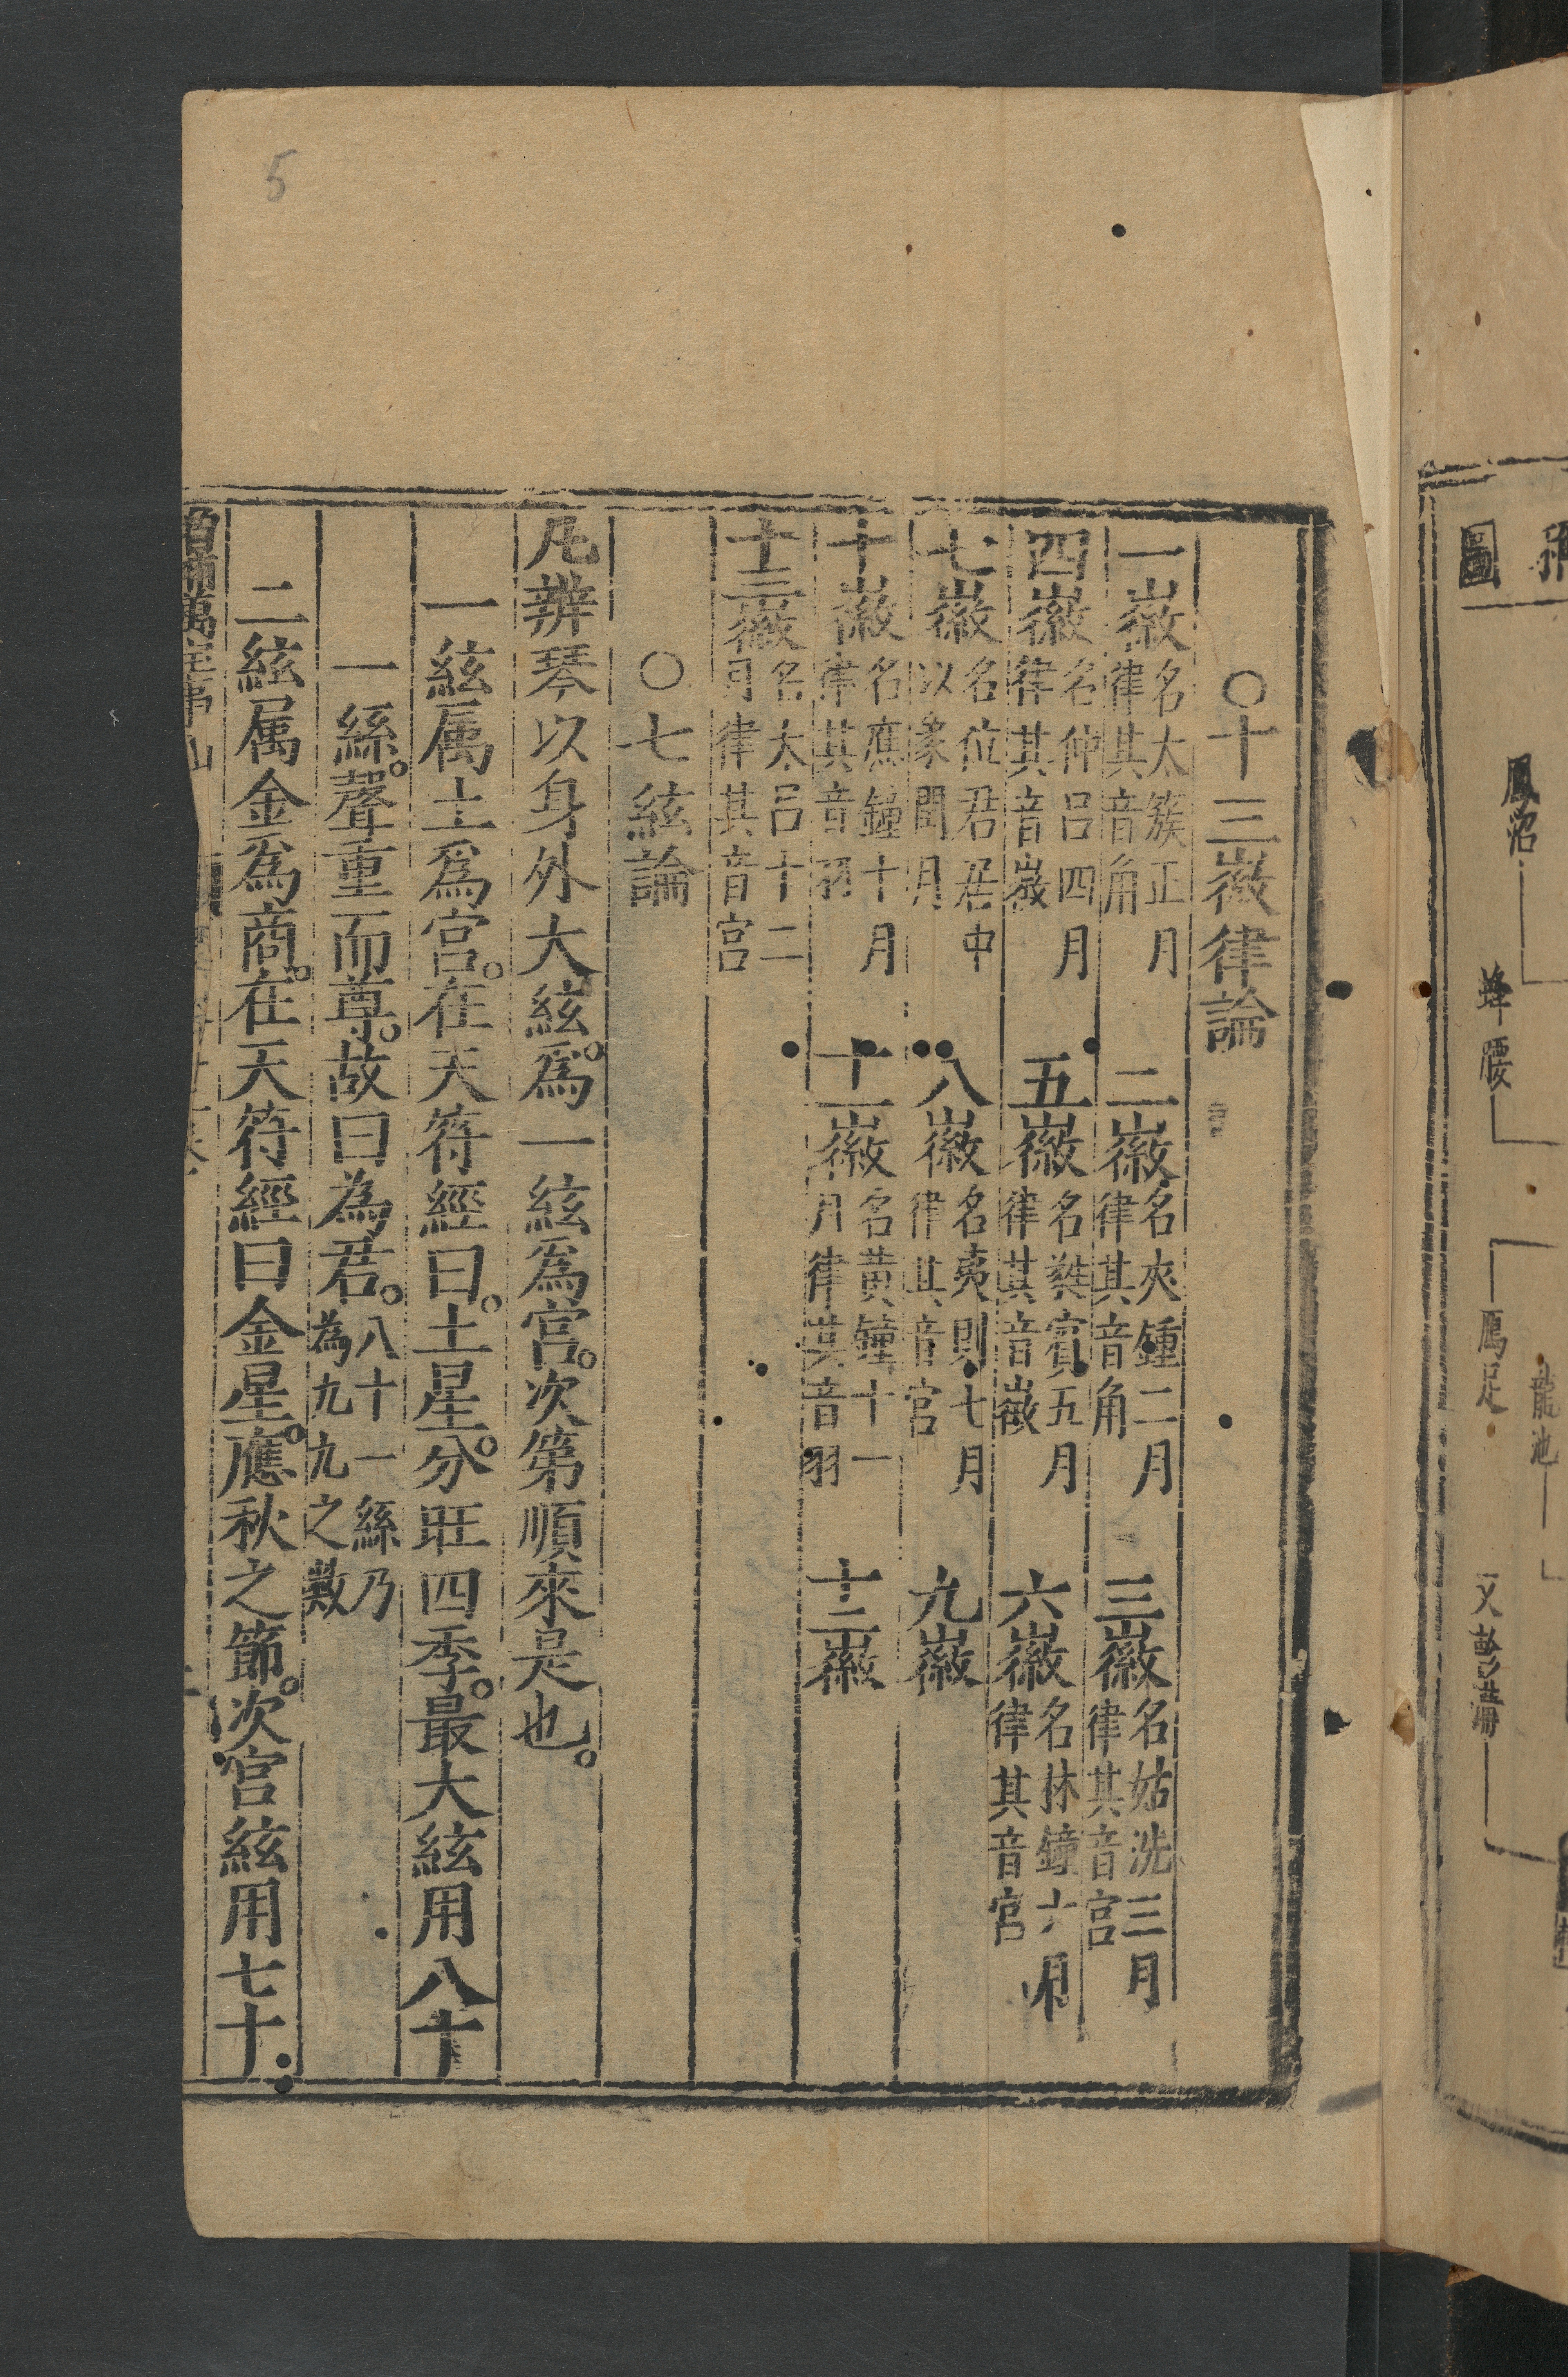 圖
鳳沼
蜂腰
鴈足
龍池
○十三徽律論
一徽名太簇正月律其音角 二徽名夾鍾二月律其音角 三徽名姑洗三月律其音宮
四徽名仲呂四月律其音徵 五徽名蕤賓五月律其音徵 六徽名林鐘六月律其音宮
七徽名位君居中以象閏月 八徽名夷則七月律其音宮 九徽
十徽名應鐘十月律其音羽 十一徽名黃鐘十一月律其音羽 十二徽
十三徽名太呂十二月律其音宮
○七絃論
凡辨琴以身外大絃。爲一絃爲宮。次第順來是也。
一絃属土爲宮。在天符經曰。土星。分旺四季。最大絃用八十
一絲。聲重而尊。故曰為君。八十一絲乃為九九之數
二絃属金爲商。在天符經曰金星。應秋之節。次宮絃用七十
5